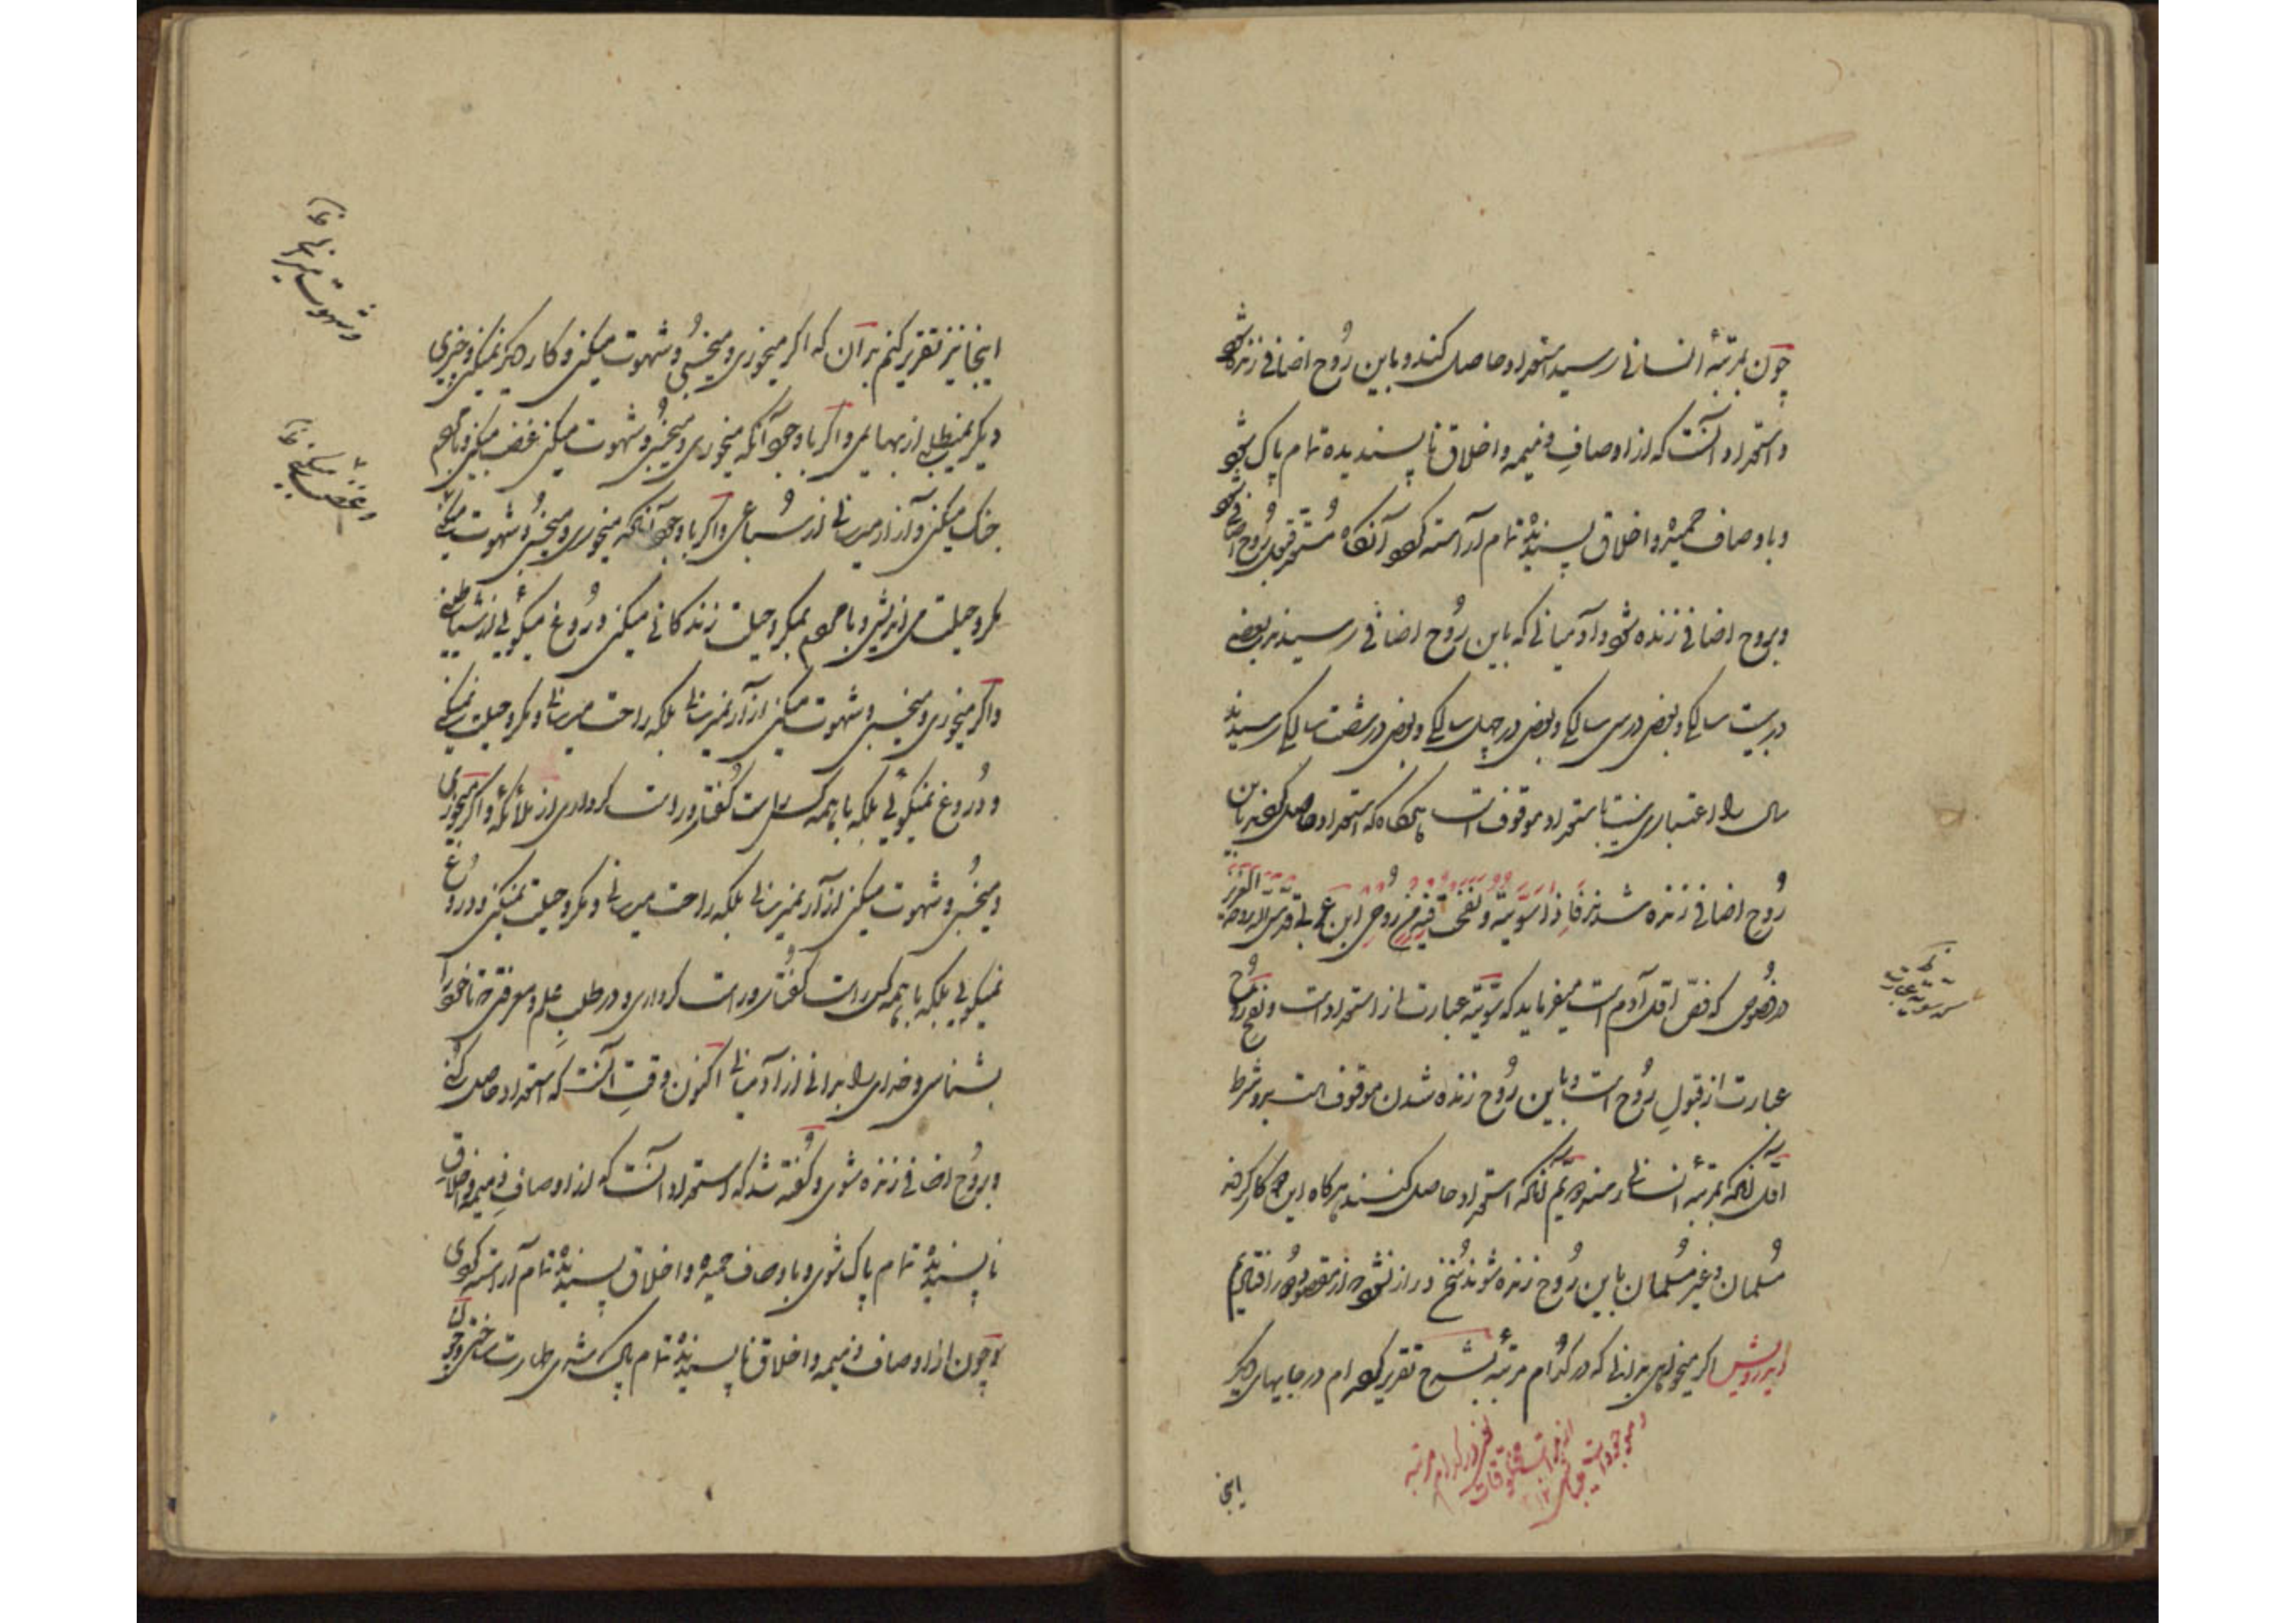 چون بمرتبهٔ انسانی رسید استعداد حاصل کند و باین رُوح اضافی زنده شود
و استعداد آنست که از اوصافِ ذمیمه و اخلاق ناپسندیده تمام پاک شود
و باوصاف حمیده و اخلاق پسندیده تمام آراسته کردد آنکاه مُستعد قبول رُوح اضافی شود
و بروح اضافی زنده شود و آدمیانی که باین رُوح اضافی رسیدند بعضی
در بیست سالکی و بعضی در سی سالکی و بعضی در چهل سالکی و بعضی در شصت سالکی رسیدند
سال را اعتباری نیست باستعداد موقوفست هرکاه که استعداد حاصل کردند باین
رُوح اضافی زنده شدند فَاِذَا سَوَّیتُهُ وَنَفَختُ فِیهِ مِن رُوحِی ابن عربی قدس الله روحه العزیز
در فصُوص که فصّ اوّل آدم است میفرماید که تسویه عبارت از استعداد است و نفخ رُوح
عبارت از قبولِ رُوح است و باین رُوح زنده شدن موقوفست بدو شرط
اوّل آنکه بمرتبهٔ انسانی رسند دویّم آنکه استعداد حاصل کنند هرکاه این دو کار کردند
مُسلمان و غیر مُسلمان باین رُوح زنده شوند سُخن دراز شُد و از مقصود دُور افتادیم
ای درویش اکر میخواهی بدانی که در کدام مرتبهٔ بشرح تقریر کرده‌ام در جایهای دیکر
یعنی در کدام مرتبه
از مراتب مخلوقات
و موجودات
اینجا
تسویه عبارت
اینجا نیز تقریر کنم بدان که اکر میخوری و میخسبُی و شهوت میکنی و کار دیکر نمیکنی و چیزی
دیکر نمیطلبی از بهایمی و اکر با وجود آنکه میخوری و میخسبُی و شهوت میکنی غضب میکنی و با مردم
جنک میکنی و آزار میرسانی از سُباعی و اکر با وجود آنکه میخوری و میخسبُی و شهوت میکنی
مکر و حیلت می‌اندیشی و با مردم بمکر و حیلت زندکانی میکنی و دُروغ میکوئی از شیاطینی
و اکر میخوری و میخسبی و شهوت میکنی و آزار نمیرسانی بلکه راحت میرسانی و مکر و حیلت نمیکنی
و دُروغ نمیکوئی بلکه با همه کس راست کُفتار و راست کرداری از ملائکهٔ و اکر میخوری
و میخسبُی و شهوت میکنی و آزار نمیرسانی بلکه راحت میرسانی و مکر و حیلت نمیکنی و دروغ
نمیکوئی بلکه با همه کس راست کُفتار و راست کرداری و در طلبِ علم و معرفتی تا خود را
بشناسی و خدای را بدانی از آدمیانی اکنون وقتِ آنست که استعداد حاصل کنی
و برُوح اضافی زنده شوی و کُفته شد که استعداد آنست که از اوصافِ ذمیمه و اخلاق
ناپسندیده تمام پاک شوی و باوصاف حمیده و اخلاق پسندیده تمام آراسته کردی
و چون از اوصاف ذمیمه و اخلاق ناپسندیده تمام پاک شدی طهارت ساختی و چون
و شهوت میرانی خ
و غضب